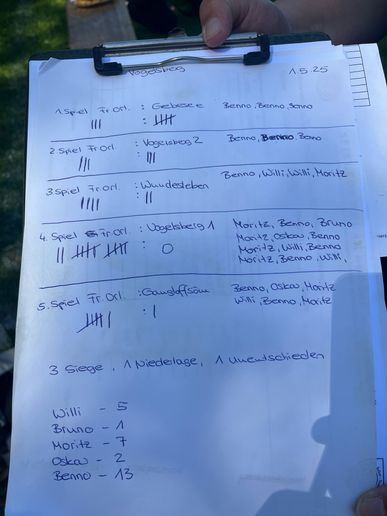 Vogelsberg 1.5.25
1. Spiel Fr. Orl. : Gebesee Benno, Benno, Benno
III : IIII
2. Spiel Fr. Orl. : Vogelsberg 2 Benno, Benno, Benno
III : III
3. Spiel Fr. Orl. : Wundesleben Benno, Willi, Willi, Moritz
IIII : II
4. Spiel Fr. Orl. : Vogelsberg 1 Moritz, Benno, Bruno
II IIII IIII : 0 Moritz, Oskar, Benno
Moritz, Willi, Benno
Moritz, Benno, Willi,
5. Spiel Fr. Orl. : Gangloffsöm Benno, Oskar, Moritz
IIII I : I Willi, Benno, Moritz
3 Siege, 1 Niederlage, 1 Unentschieden
Willi - 5
Bruno - 1
Moritz - 7
Oskar - 2
Benno - 13